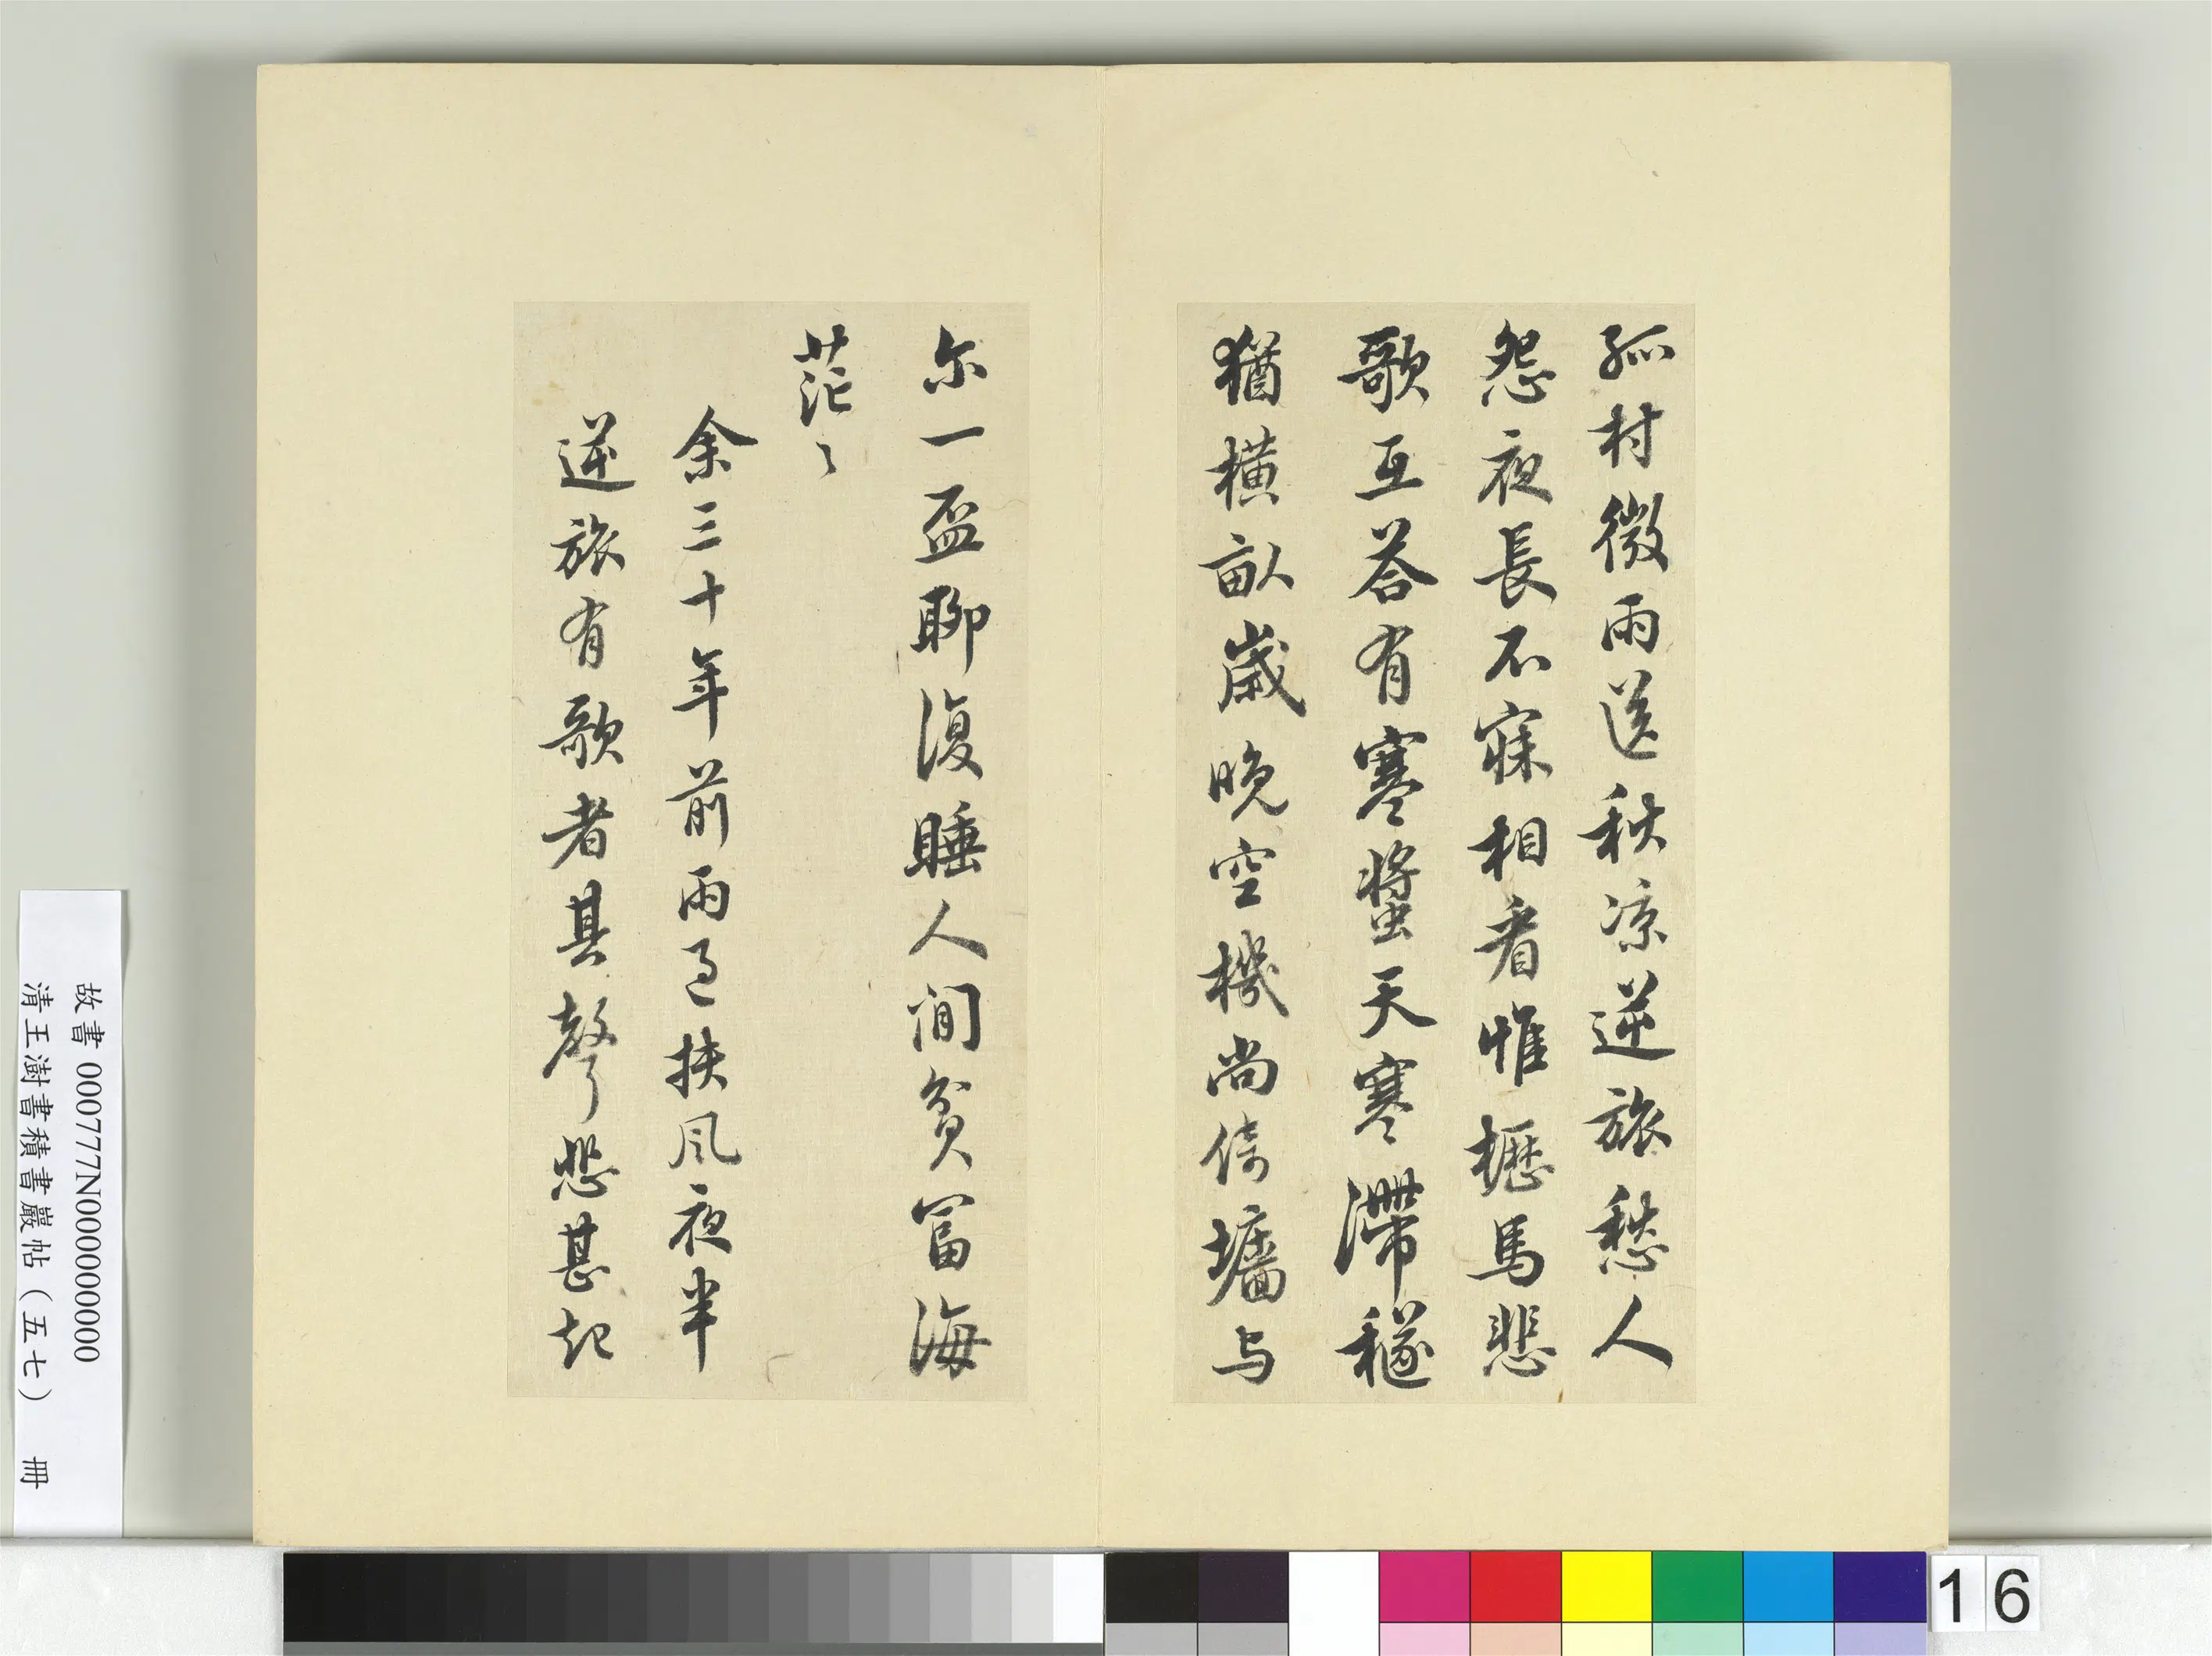 孤村微雨送秋凉逆旅愁人
怨夜長不寐相看惟櫪馬悲
歌互荅有寒螿天寒滯穟
猶橫畝歲晚空機尚倚墻与
尔一盃聊復睡人間貧富海
茫〻
余三十年前雨過扶风夜半
逆旅有歌者其聲悲甚起
故書 000777N000000000
清王澍書積書巖帖（五七） 冊
16